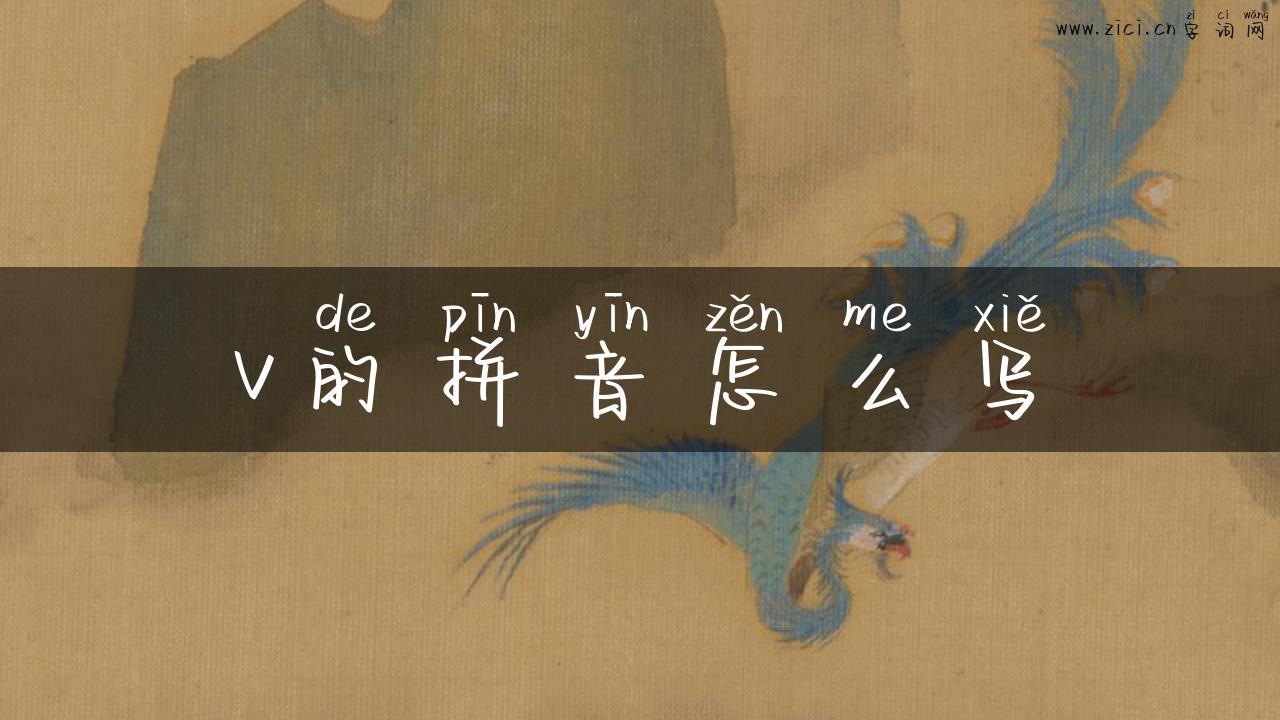 zì cí wǎng
www.zici.cn 字词网
de pīn yīn zěn me xiě
V的拼音怎么写